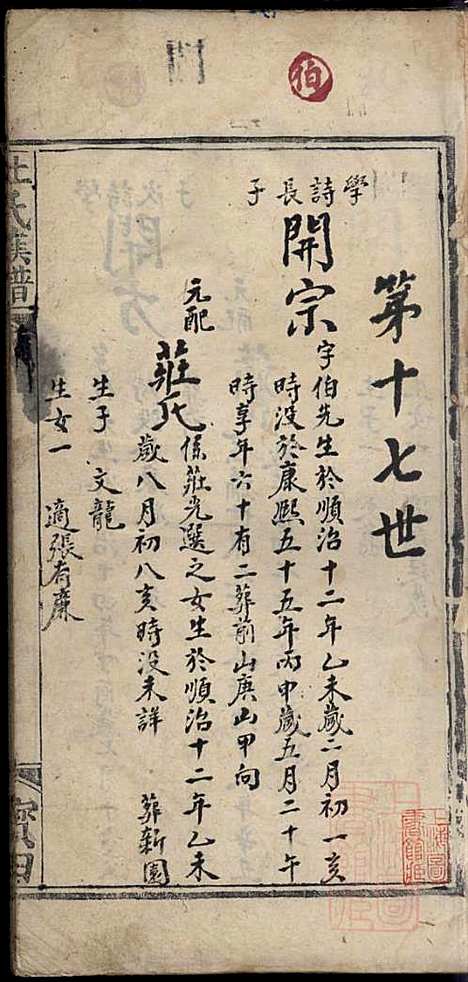 伯
第十七世
學詩長子
開宗
字伯先生於順治十二年乙未歲二月初一亥
時没於康熙五十五年丙申歲五月二十午
時享年六十有二葬前山庚山甲向
元配
莊氏
係莊光選之女生於順治十二年乙未
歲八月初八亥時没未詳
葬新園
生子文龍
生女一
適張有廉
氏族譜
上海圖書館藏